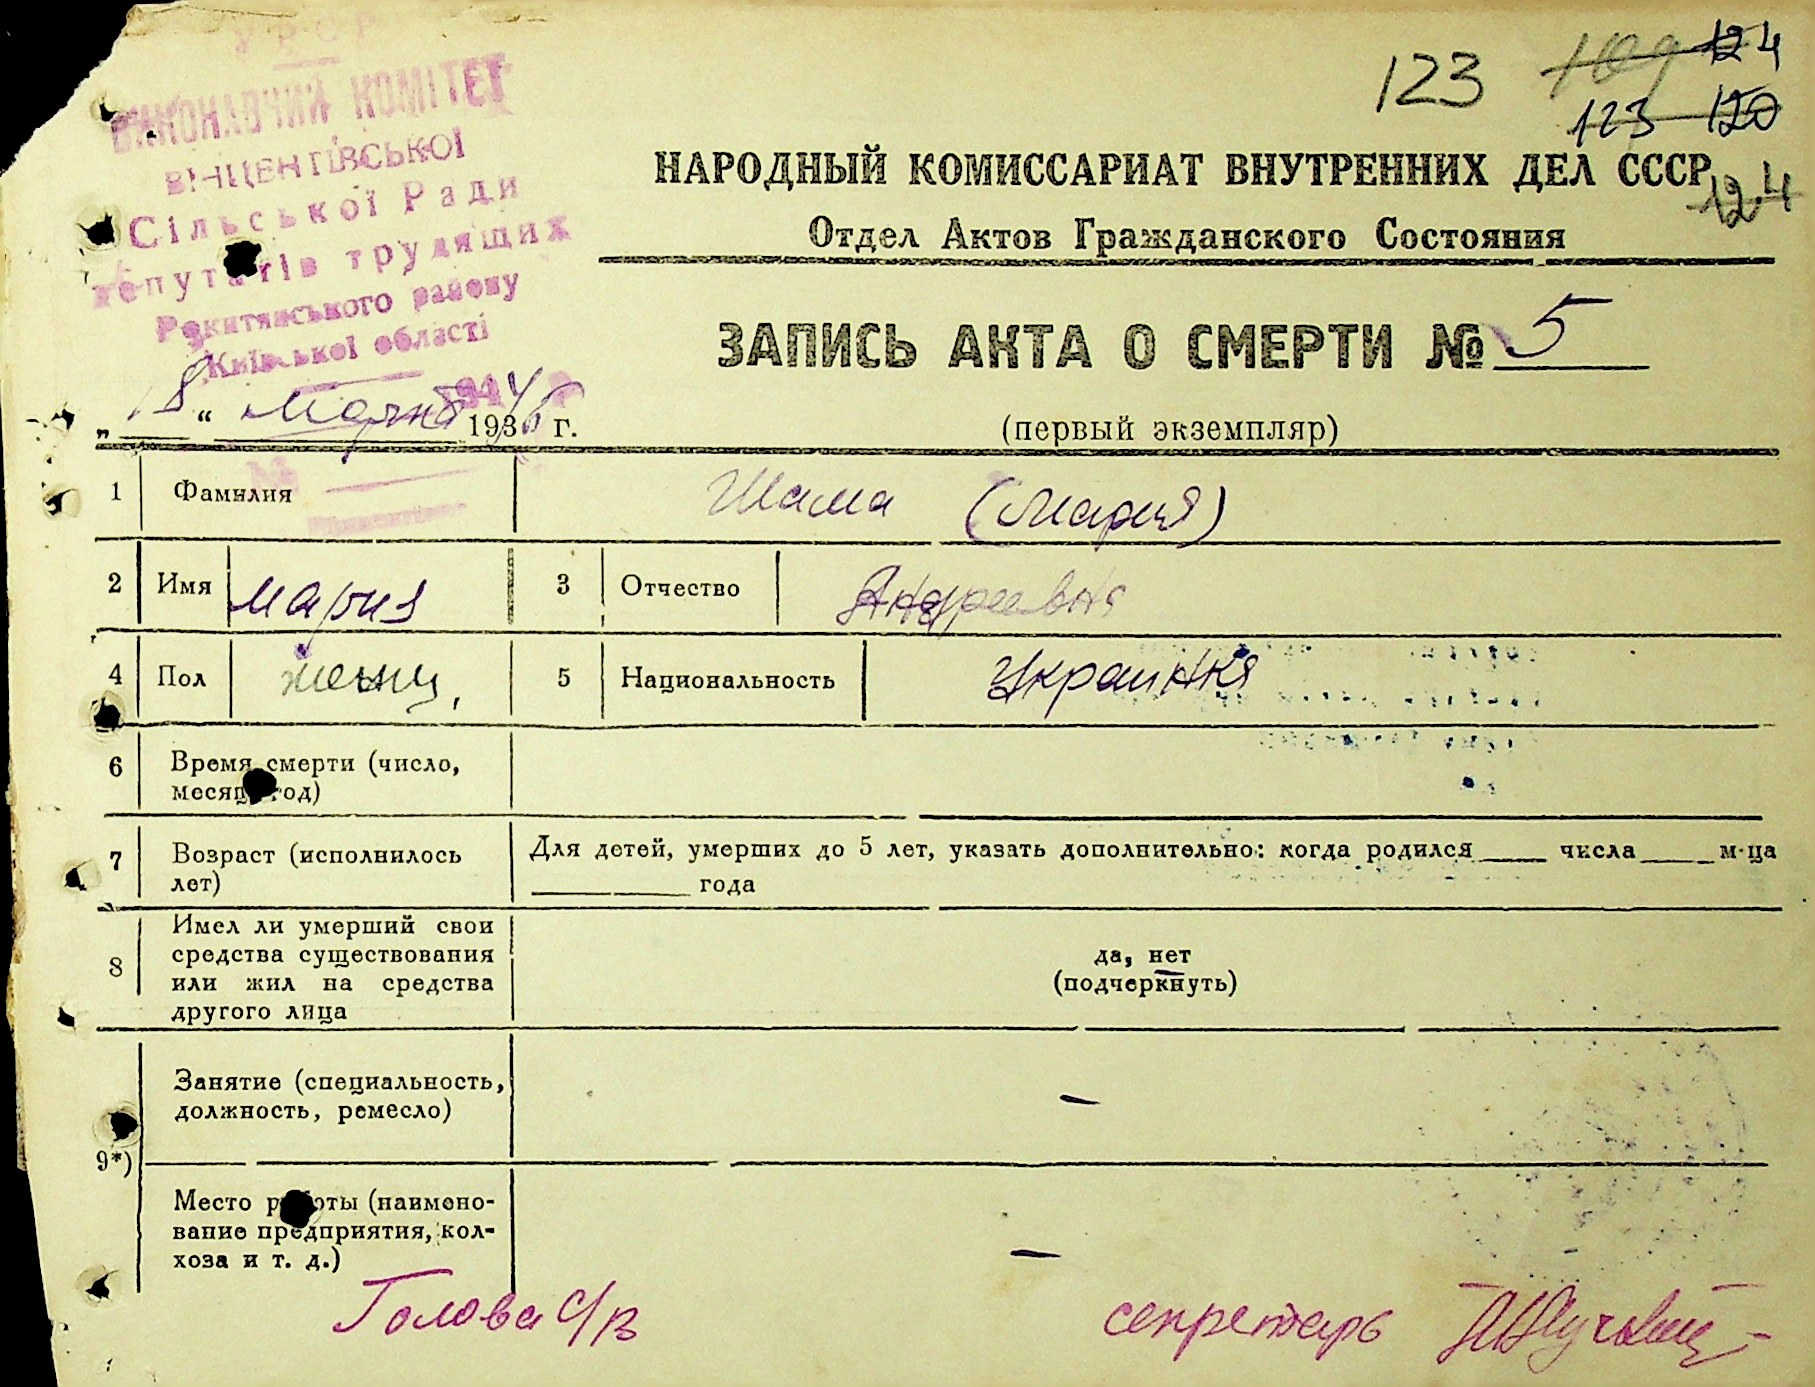 УРСР
ВИКОНАВЧИЙ КОМІТЕТ
ВІНЦЕНТІВСЬКОЇ
Сільської Ради
депутатів трудящих
Рокитянського району
Київської області
123 109 124
123 120
124
НАРОДНЫЙ КОМИССАРИАТ ВНУТРЕННИХ ДЕЛ СССР
Отдел Актов Гражданского Состояния
ЗАПИСЬ АКТА О СМЕРТИ № 5
„18“ Марта 1946 г.
(первый экземпляр)
1 Фамилия Шама (Мария)
2 Имя Мария 3 Отчество Андреевна
4 Пол женщ. 5 Национальность Украинка
6 Время смерти (число,
месяц, год)
7 Возраст (исполнилось
лет)
Для детей, умерших до 5 лет, указать дополнительно: когда родился____ числа____ м-ца
____ года
8 Имел ли умерший свои
средства существования
или жил на средства
другого лица
да, нет
(подчеркнуть)
9*)
Занятие (специальность,
должность, ремесло) —
Место работы (наимено-
вание предприятия, кол-
хоза и т. д.) —
Голова с/р секретарь